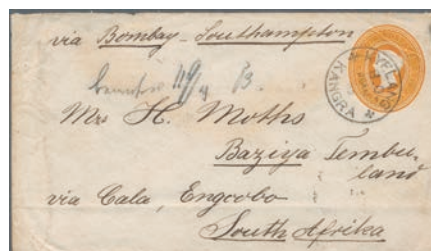 via Bombay - Southampton
KYELANG
KANGRA
Mrs H. Moths
Baziya Tembu-
land
via Cala, Engcobo
South Afrika